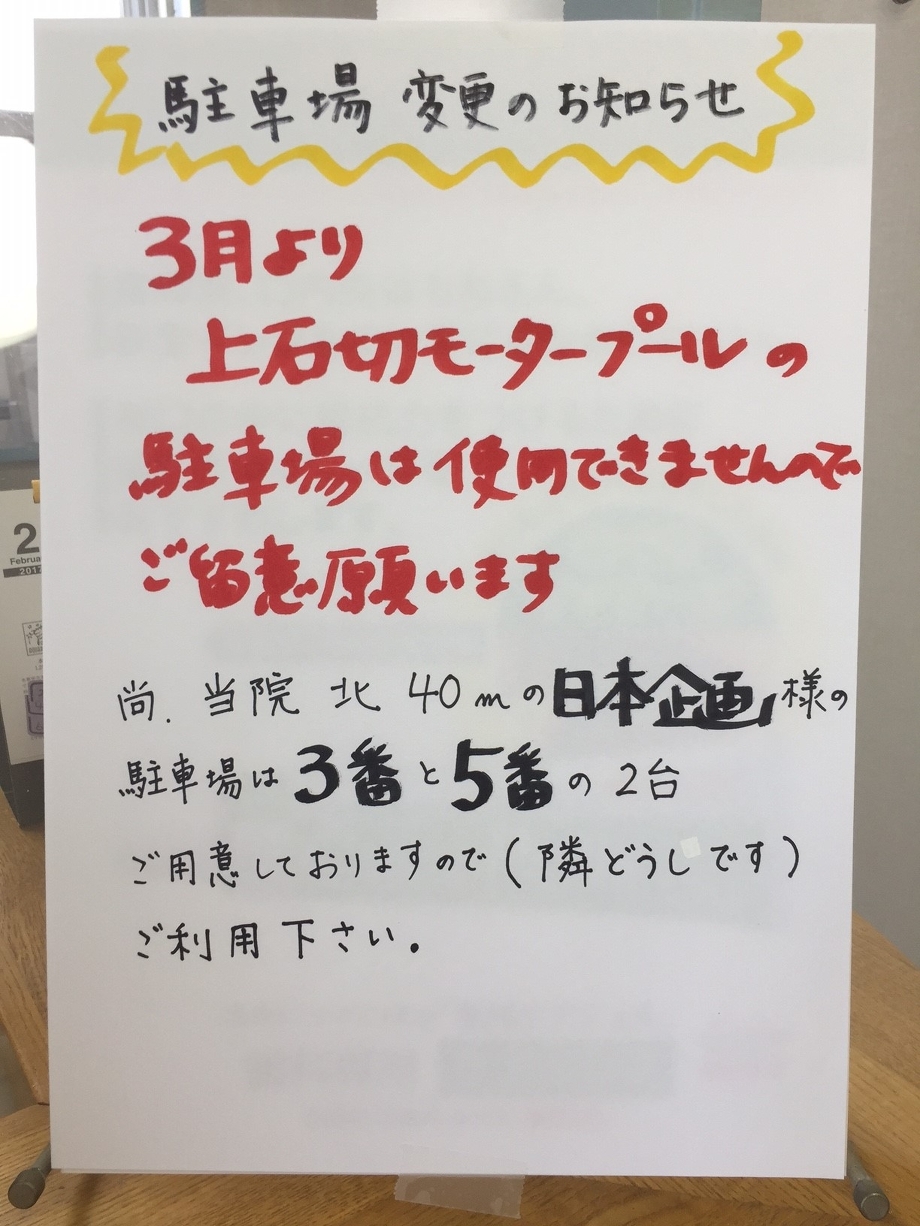 駐車場 変更のお知らせ
3月より
上石切モータープールの
駐車場は使用できませんので
ご留意願います
尚、当院 北 40mの日本企画様の
駐車場は3番と5番の2台
ご用意しておりますので(隣どうしです)
ご利用下さい。
2
Februa
2017